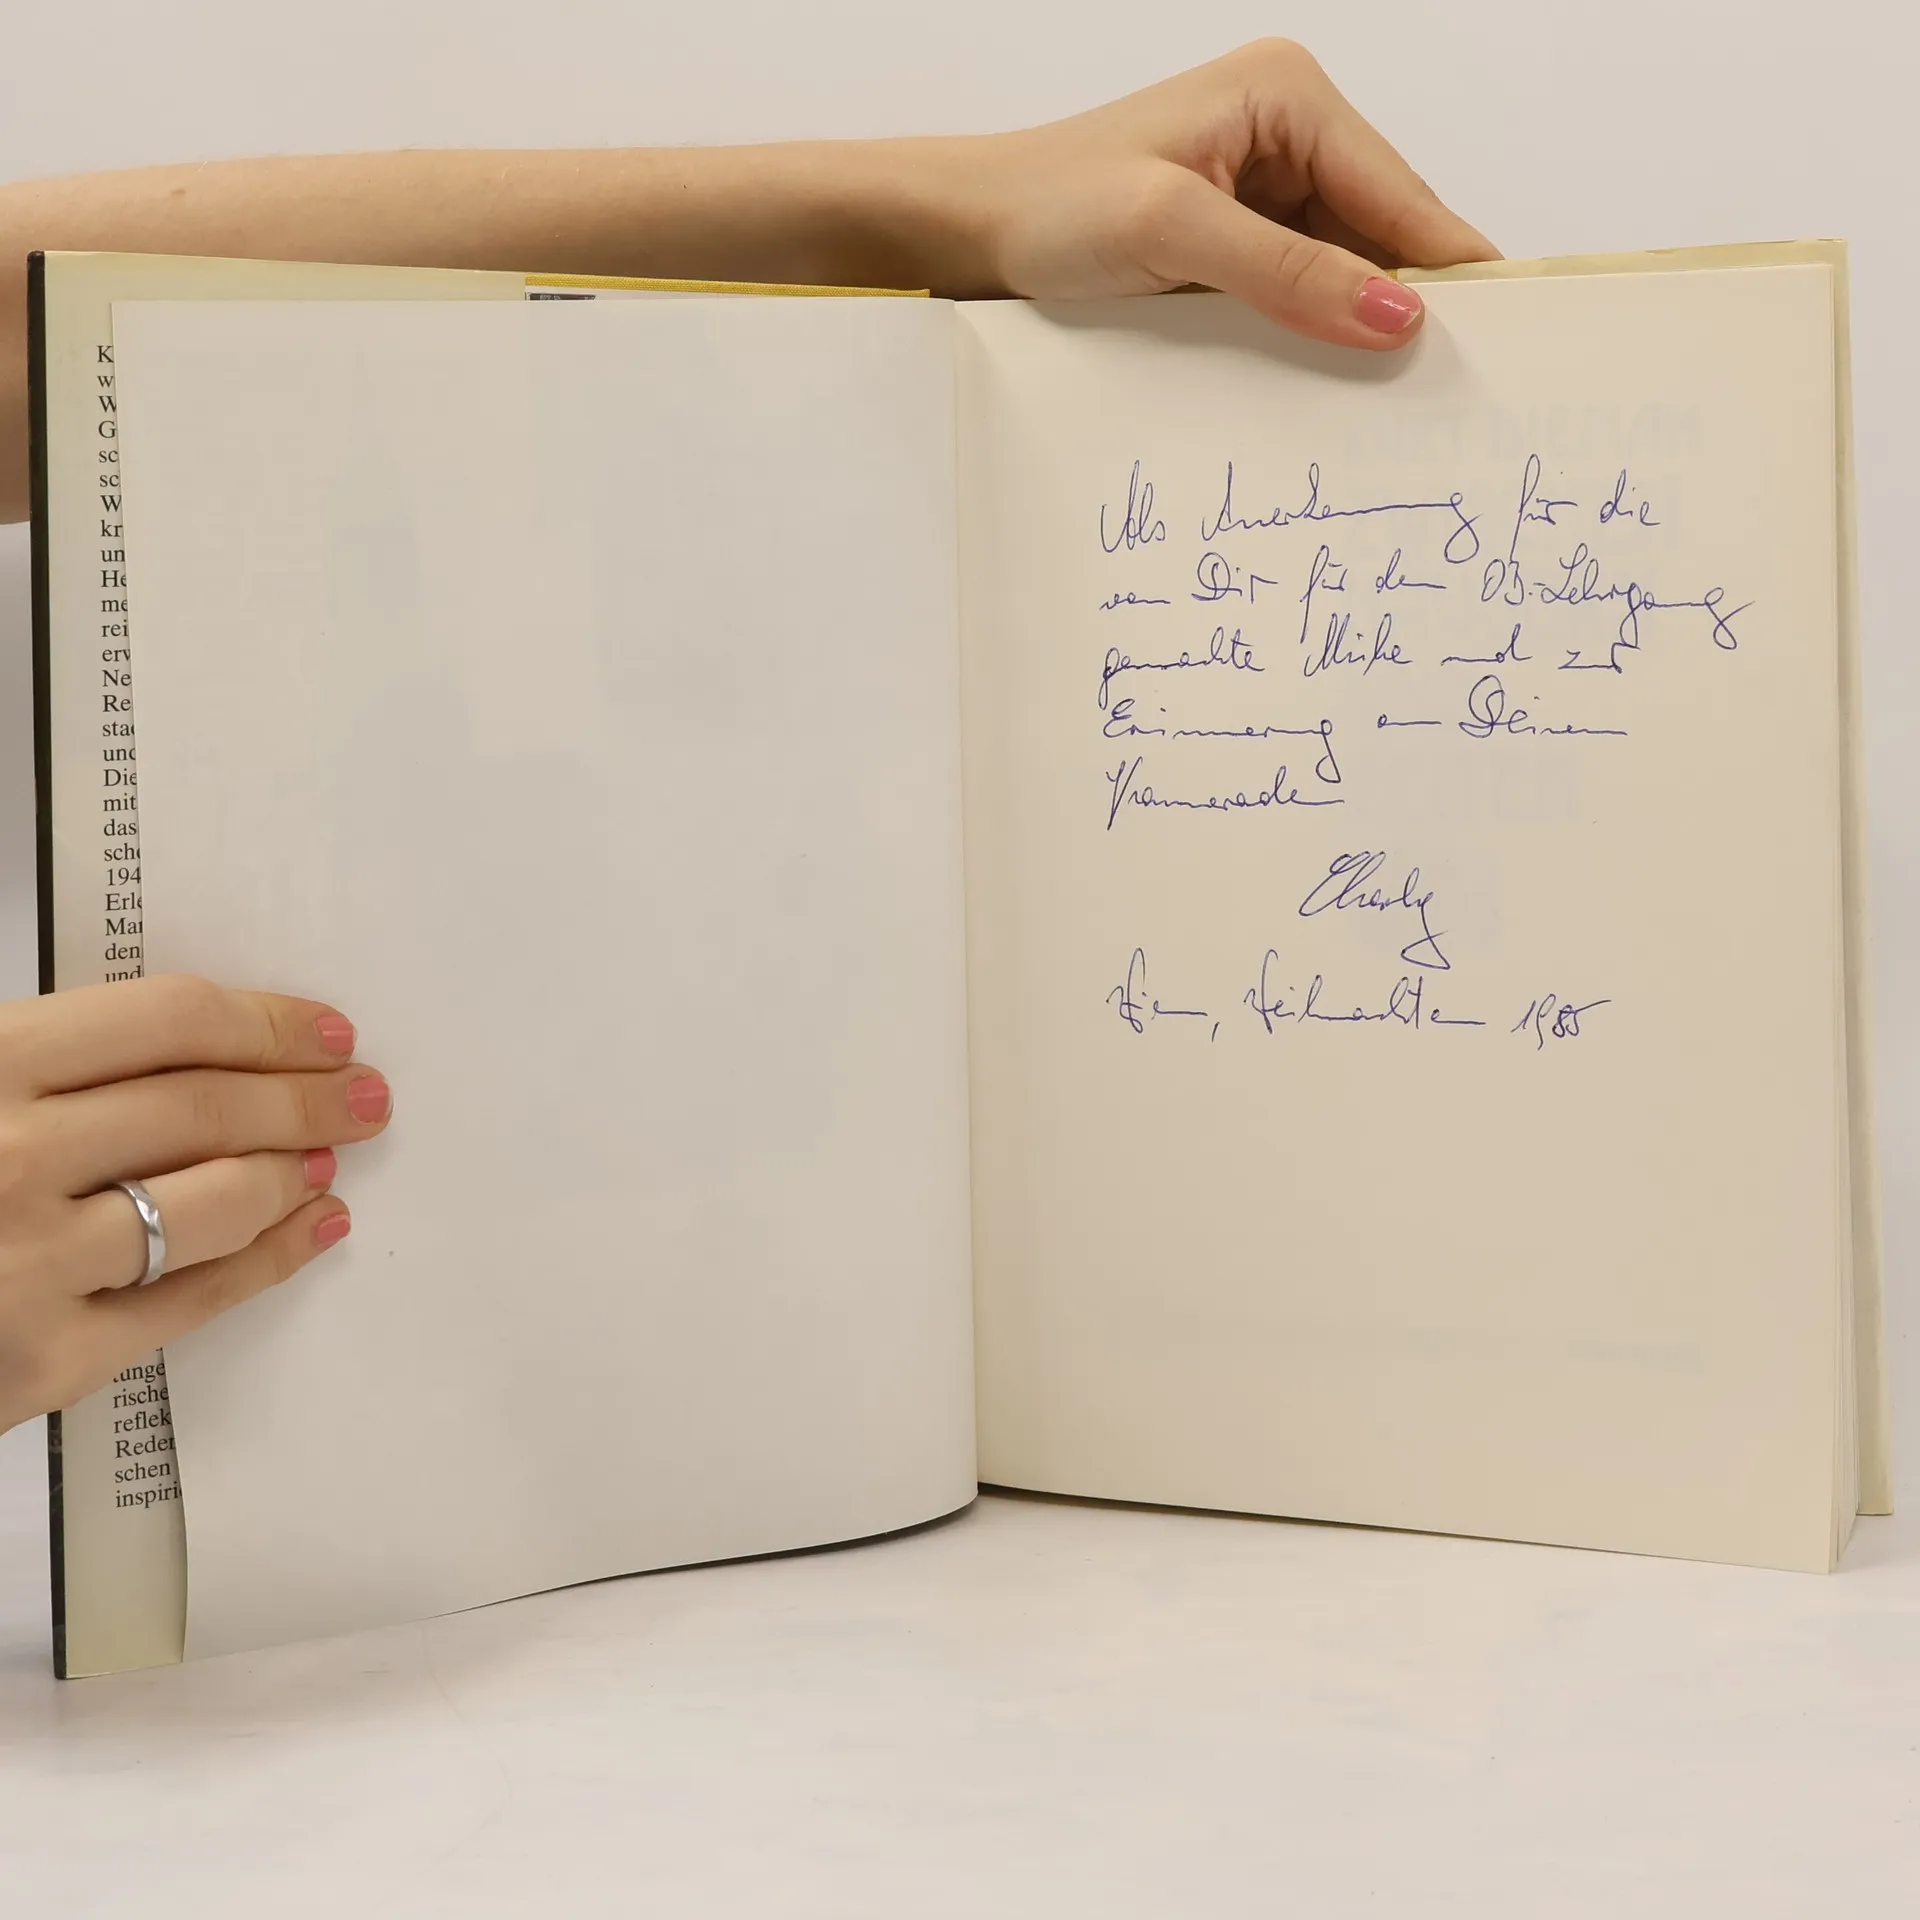 K
w
W
G
sc
sc
W
kr
un
He
me
rei
erw
Ne
Re
sta
und
Die
mit
das
sch
194
Erle
Mar
den
und
tunge
rische
reflek
Reden
schen
inspiri
Als Anerkennung für die
von Dir für den OB-Lehrgang
gemachte Mühe und zur
Erinnerung an Deinen
Kameraden
Charly
Wien, Weihnachten 1985